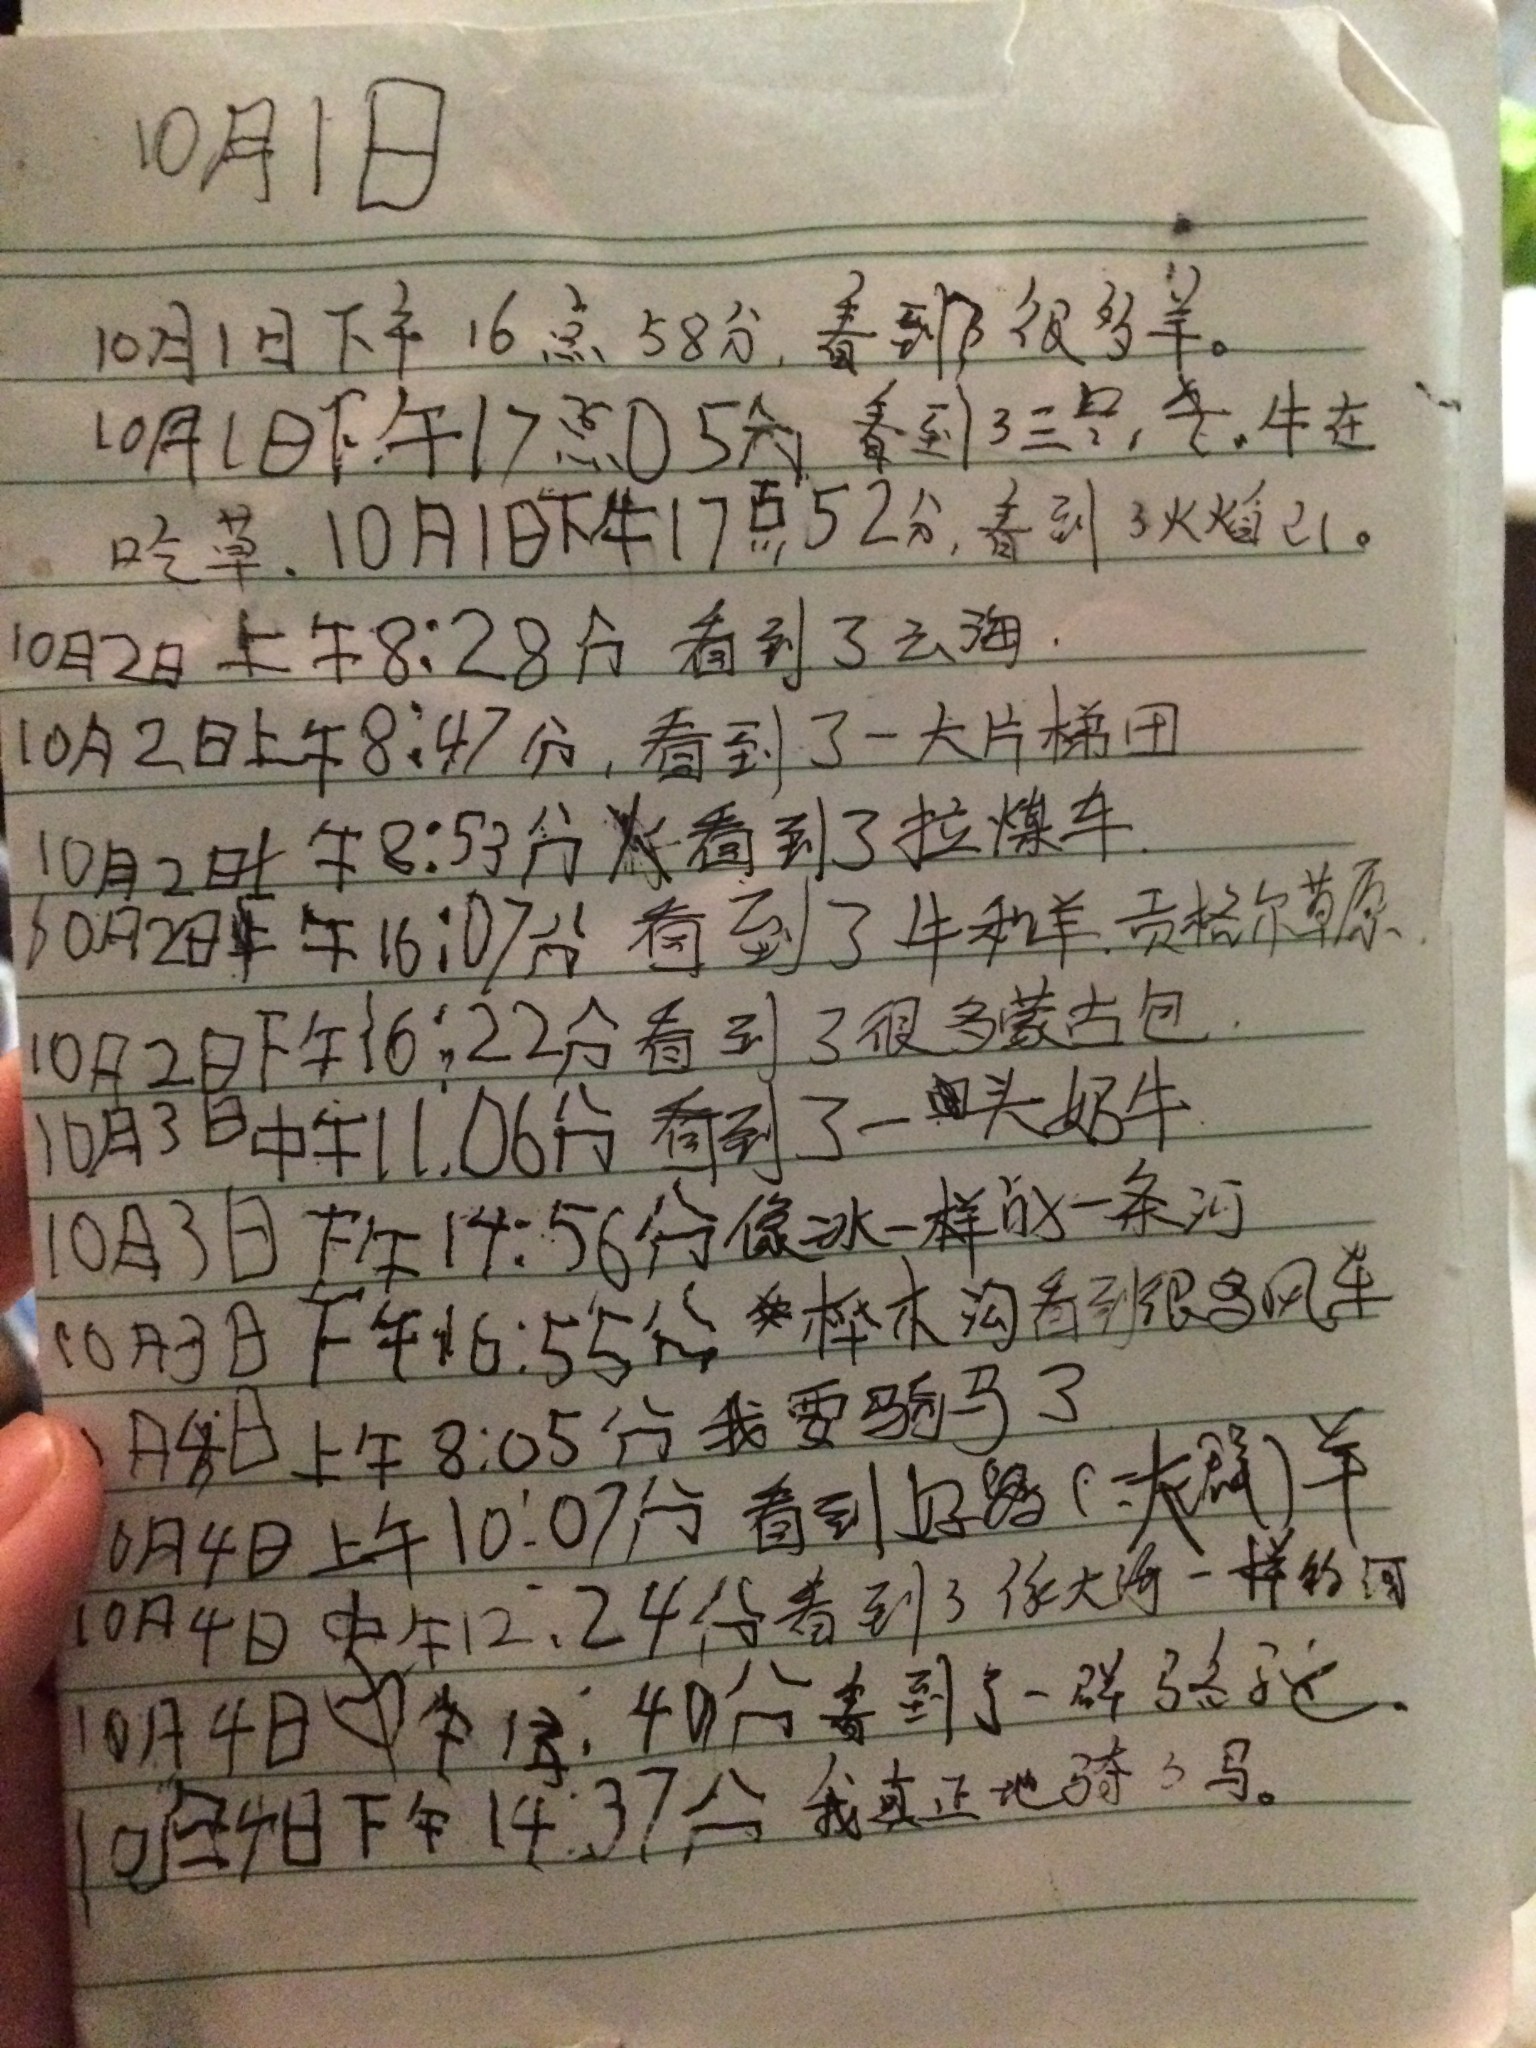 10月1日
10月1日下午16点58分,看到了很多羊。
10月1日下午17点05分,看到了三只,老,牛在
吃草.10月1日下午17点52分,看到了火焰山。
10月2日上午8:28分 看到了云海.
10月2日上午8:47分,看到了一大片梯田
10月2日上午8:53分 看到了拉煤车.
10月2日下午16:07分 看到了牛和羊.贡格尔草原.
10月2日下午16:22分看到了很多蒙古包.
10月3日中午11:06分 看到了一头奶牛
10月3日下午14:56分像冰一样的一条河
10月3日下午16:55分 桦木沟看到很多风车
月4日上午8:05分我要骑马了
10月4日上午10:07分 看到好多(:大群)羊
10月4日中午12:24分看到了像大海一样的河
10月4日 午13:40分看到了一群骆驼.
10月4日下午14:37分 我真正地骑了马。